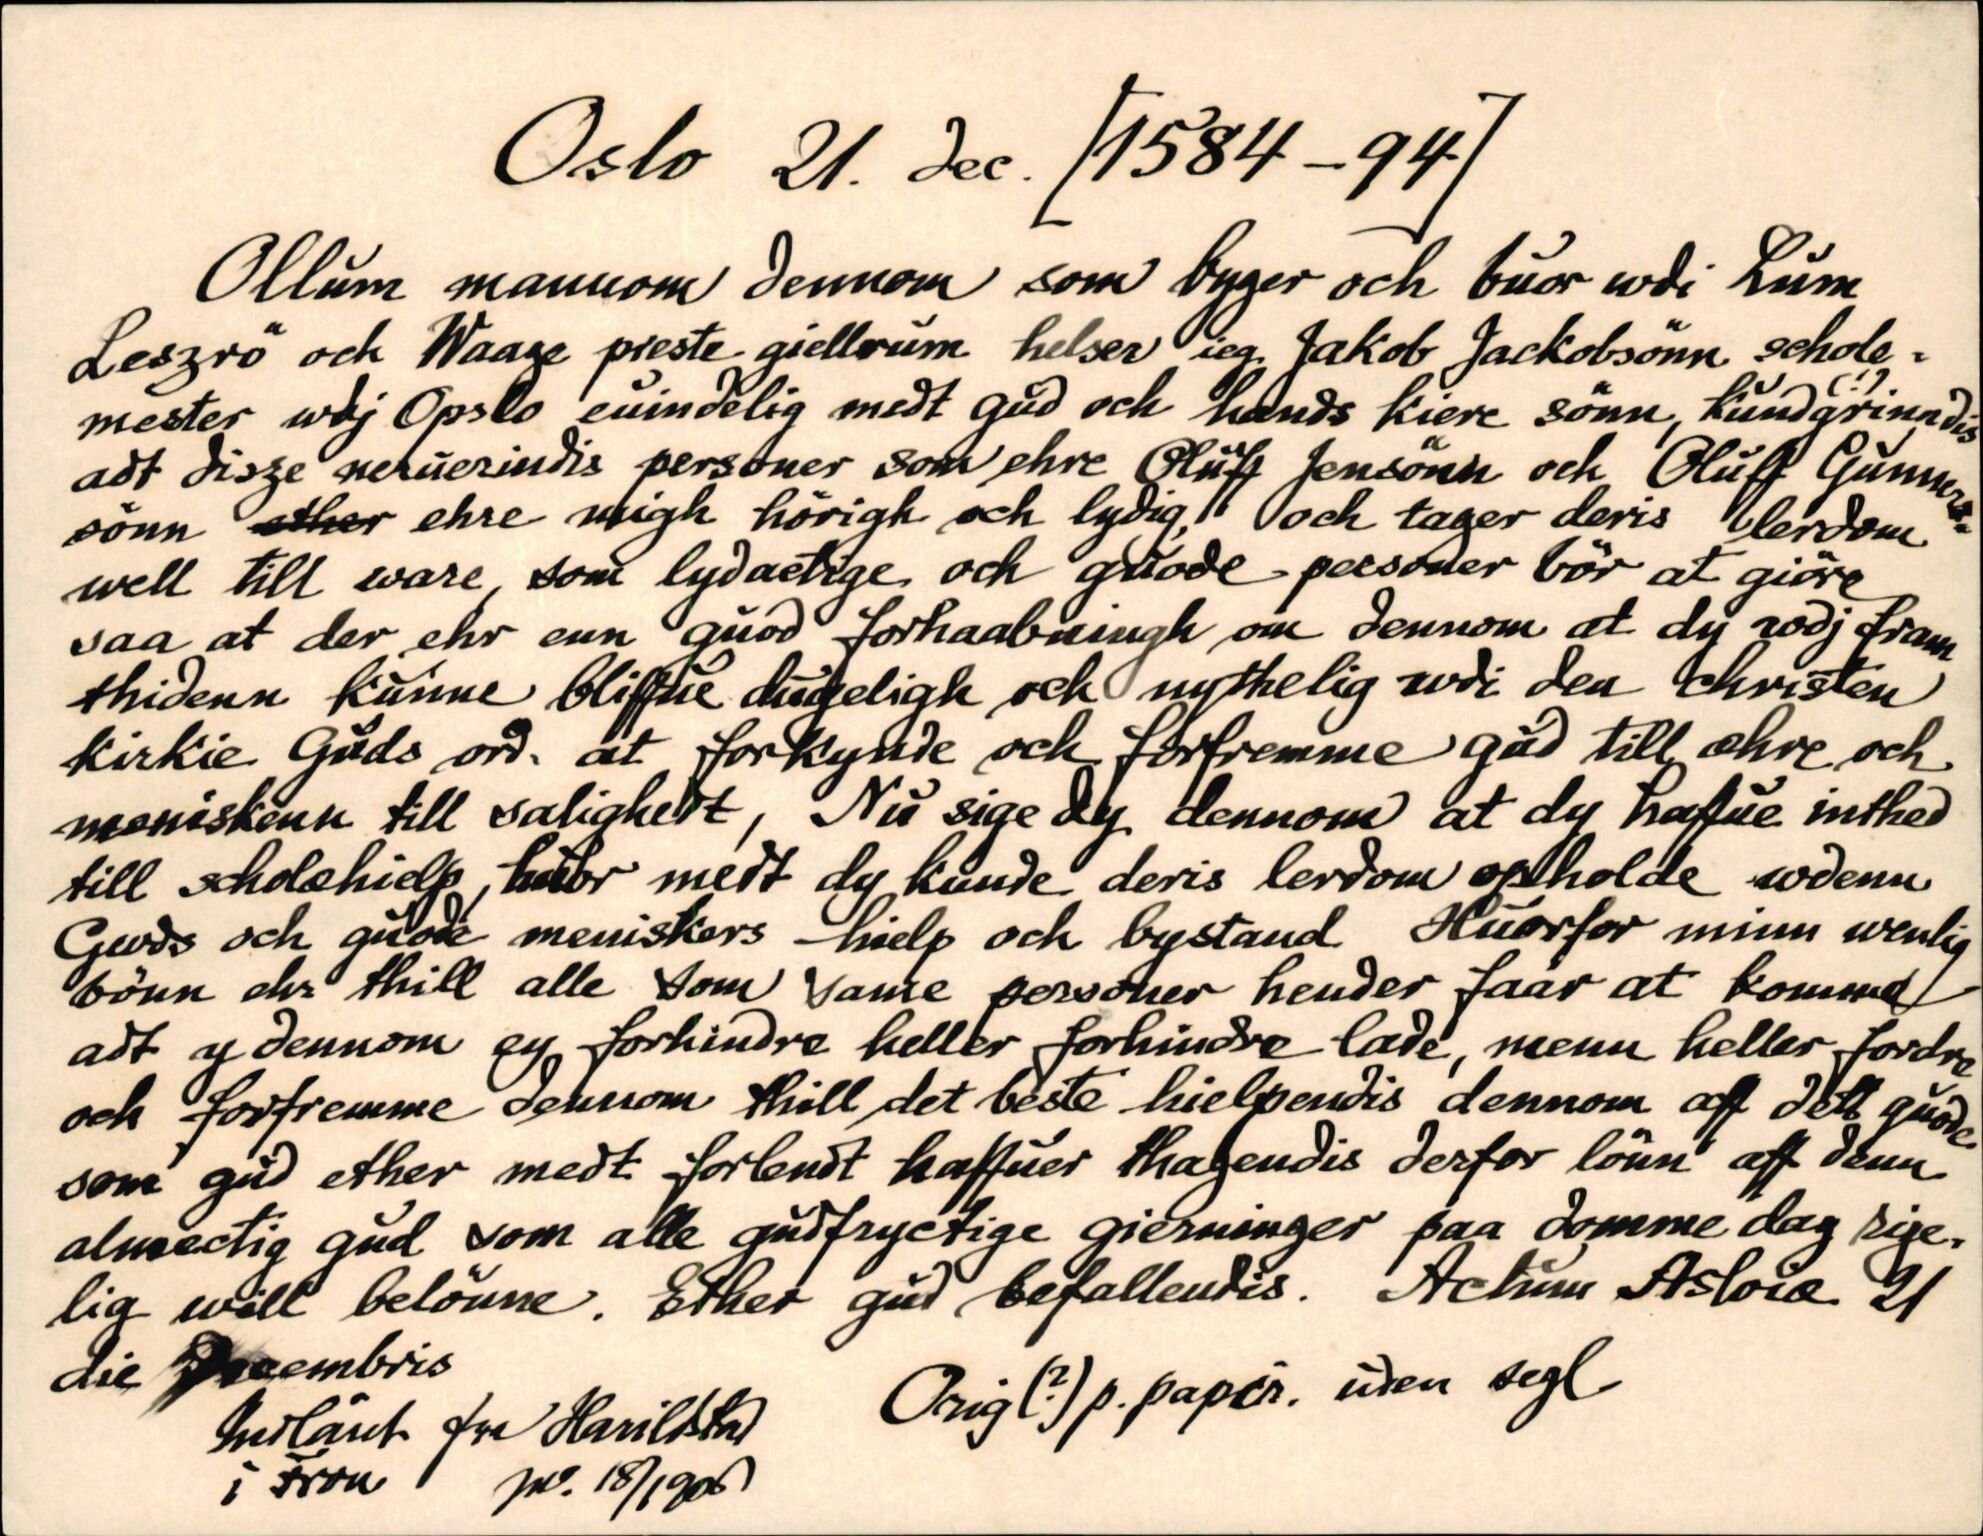 Oslo 21. dec. [1584-94]
Ollum mannom dennom som byger och buor wdi Lum
Leszrö och Waage preste giellrum helser ieg Jakob Jackobsönn schole-
mester wdj Opslo euindelig medt gud och hands kiere sönn, kundgrinndis (!)
adt disze neruerindis personer som ehre Oluff Jensönn och Oluff Gunners-
sönn ether ehre migh hörigh och lydig, och tager deris lerdom
well till ware, som lydactige och guode personer bör at giöre
saa at der ehr enn guod forhaabningh om dennom at dy wdj fram
thidenn kunne bliffue dugeligh och nythelig wdi den christen
kirkie Guds ord at forkynde och forfremme gud till ehre och
meniskenn till salighedt, Nu sige dy dennom at dy haffue inthed
till scholehielp, huor medt dy kunde deris lerdom opholde wdenn
Gwds och guode meniskers hielp och bystand Huorfor minn wenlig
bönn ehr thill alle som same personer hender faar at komme
adt y dennom ey forhindre heller forhindre lade, menn heller fordre
och forfremme dennom thill det beste hielpendis dennom aff dett guode
som gud ether medt forlendt haffuer thagendis derfor lönn aff denn
almectig gud som alle gudfryctige gierninger paa domme dag rige-
lig will belönne. Ether gud befallendis. Actum Asloiæ 21
die Decembris
Indlånt fra Harildstad
i Fron
Orig (?) p. papir. uden segl
18/1 906